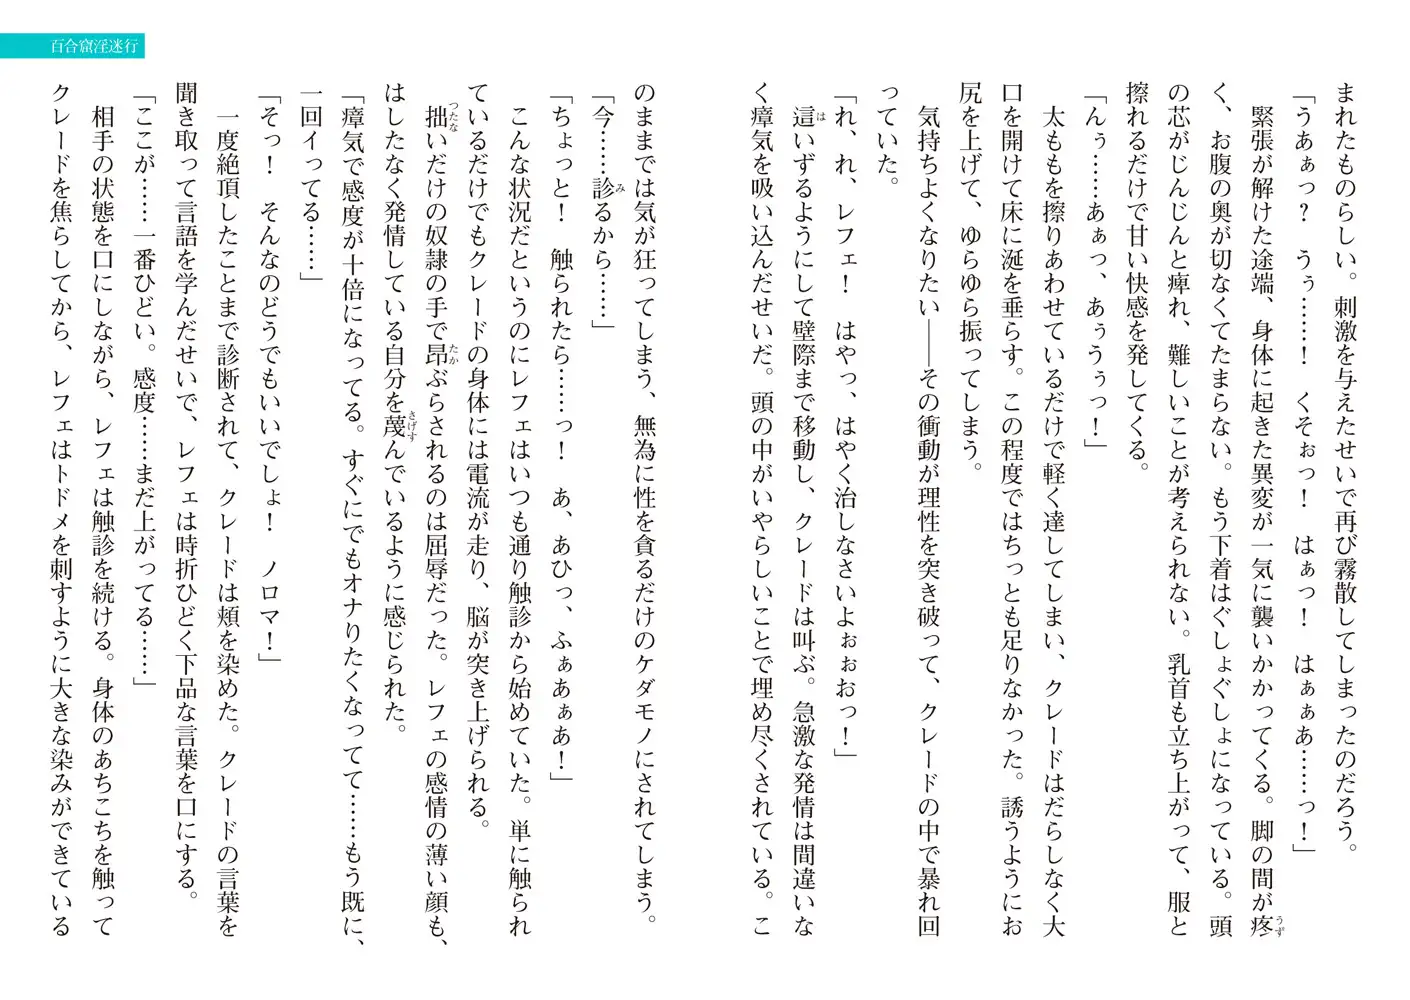 百合窟淫迷行
まれたものらしい。刺激を与えたせいで再び霧散してしまったのだろう。
「うあぁっ？　うぅ……！　くそぉっ！　はぁっ！　はぁぁあ……っ！」
うず
　緊張が解けた途端、身体に起きた異変が一気に襲いかかってくる。脚の間が疼
く、お腹の奥が切なくてたまらない。もう下着はぐしょぐしょになっている。頭
の芯がじんじんと痺れ、難しいことが考えられない。乳首も立ち上がって、服と
擦れるだけで甘い快感を発してくる。
「んぅ……あぁっ、あぅうぅっ！」
　太ももを擦りあわせているだけで軽く達してしまい、クレードはだらしなく大
口を開けて床に涎を垂らす。この程度ではちっとも足りなかった。誘うようにお
尻を上げて、ゆらゆら振ってしまう。
　気持ちよくなりたい――その衝動が理性を突き破って、クレードの中で暴れ回
っていた。
「れ、れ、レフェ！　はやっ、はやく治しなさいよぉぉおっ！」
は
　這いずるようにして壁際まで移動し、クレードは叫ぶ。急激な発情は間違いな
く瘴気を吸い込んだせいだ。頭の中がいやらしいことで埋め尽くされている。こ
のままでは気が狂ってしまう、無為に性を貪るだけのケダモノにされてしまう。
み
「今……診るから……」
「ちょっと！　触られたら……っ！　あ、あひっ、ふぁあぁあ！」
　こんな状況だというのにレフェはいつも通り触診から始めていた。単に触られ
ているだけでもクレードの身体には電流が走り、脳が突き上げられる。
つたな　たか
　拙いだけの奴隷の手で昂ぶらされるのは屈辱だった。レフェの感情の薄い顔も、
さげす
はしたなく発情している自分を蔑んでいるように感じられた。
「瘴気で感度が十倍になってる。すぐにでもオナりたくなってて……もう既に、
一回イってる……」
「そっ！　そんなのどうでもいいでしょ！　ノロマ！」
　一度絶頂したことまで診断されて、クレードは頬を染めた。クレードの言葉を
聞き取って言語を学んだせいで、レフェは時折ひどく下品な言葉を口にする。
「ここが……一番ひどい。感度……まだ上がってる……」
　相手の状態を口にしながら、レフェは触診を続ける。身体のあちこちを触って
クレードを焦らしてから、レフェはトドメを刺すように大きな染みができている